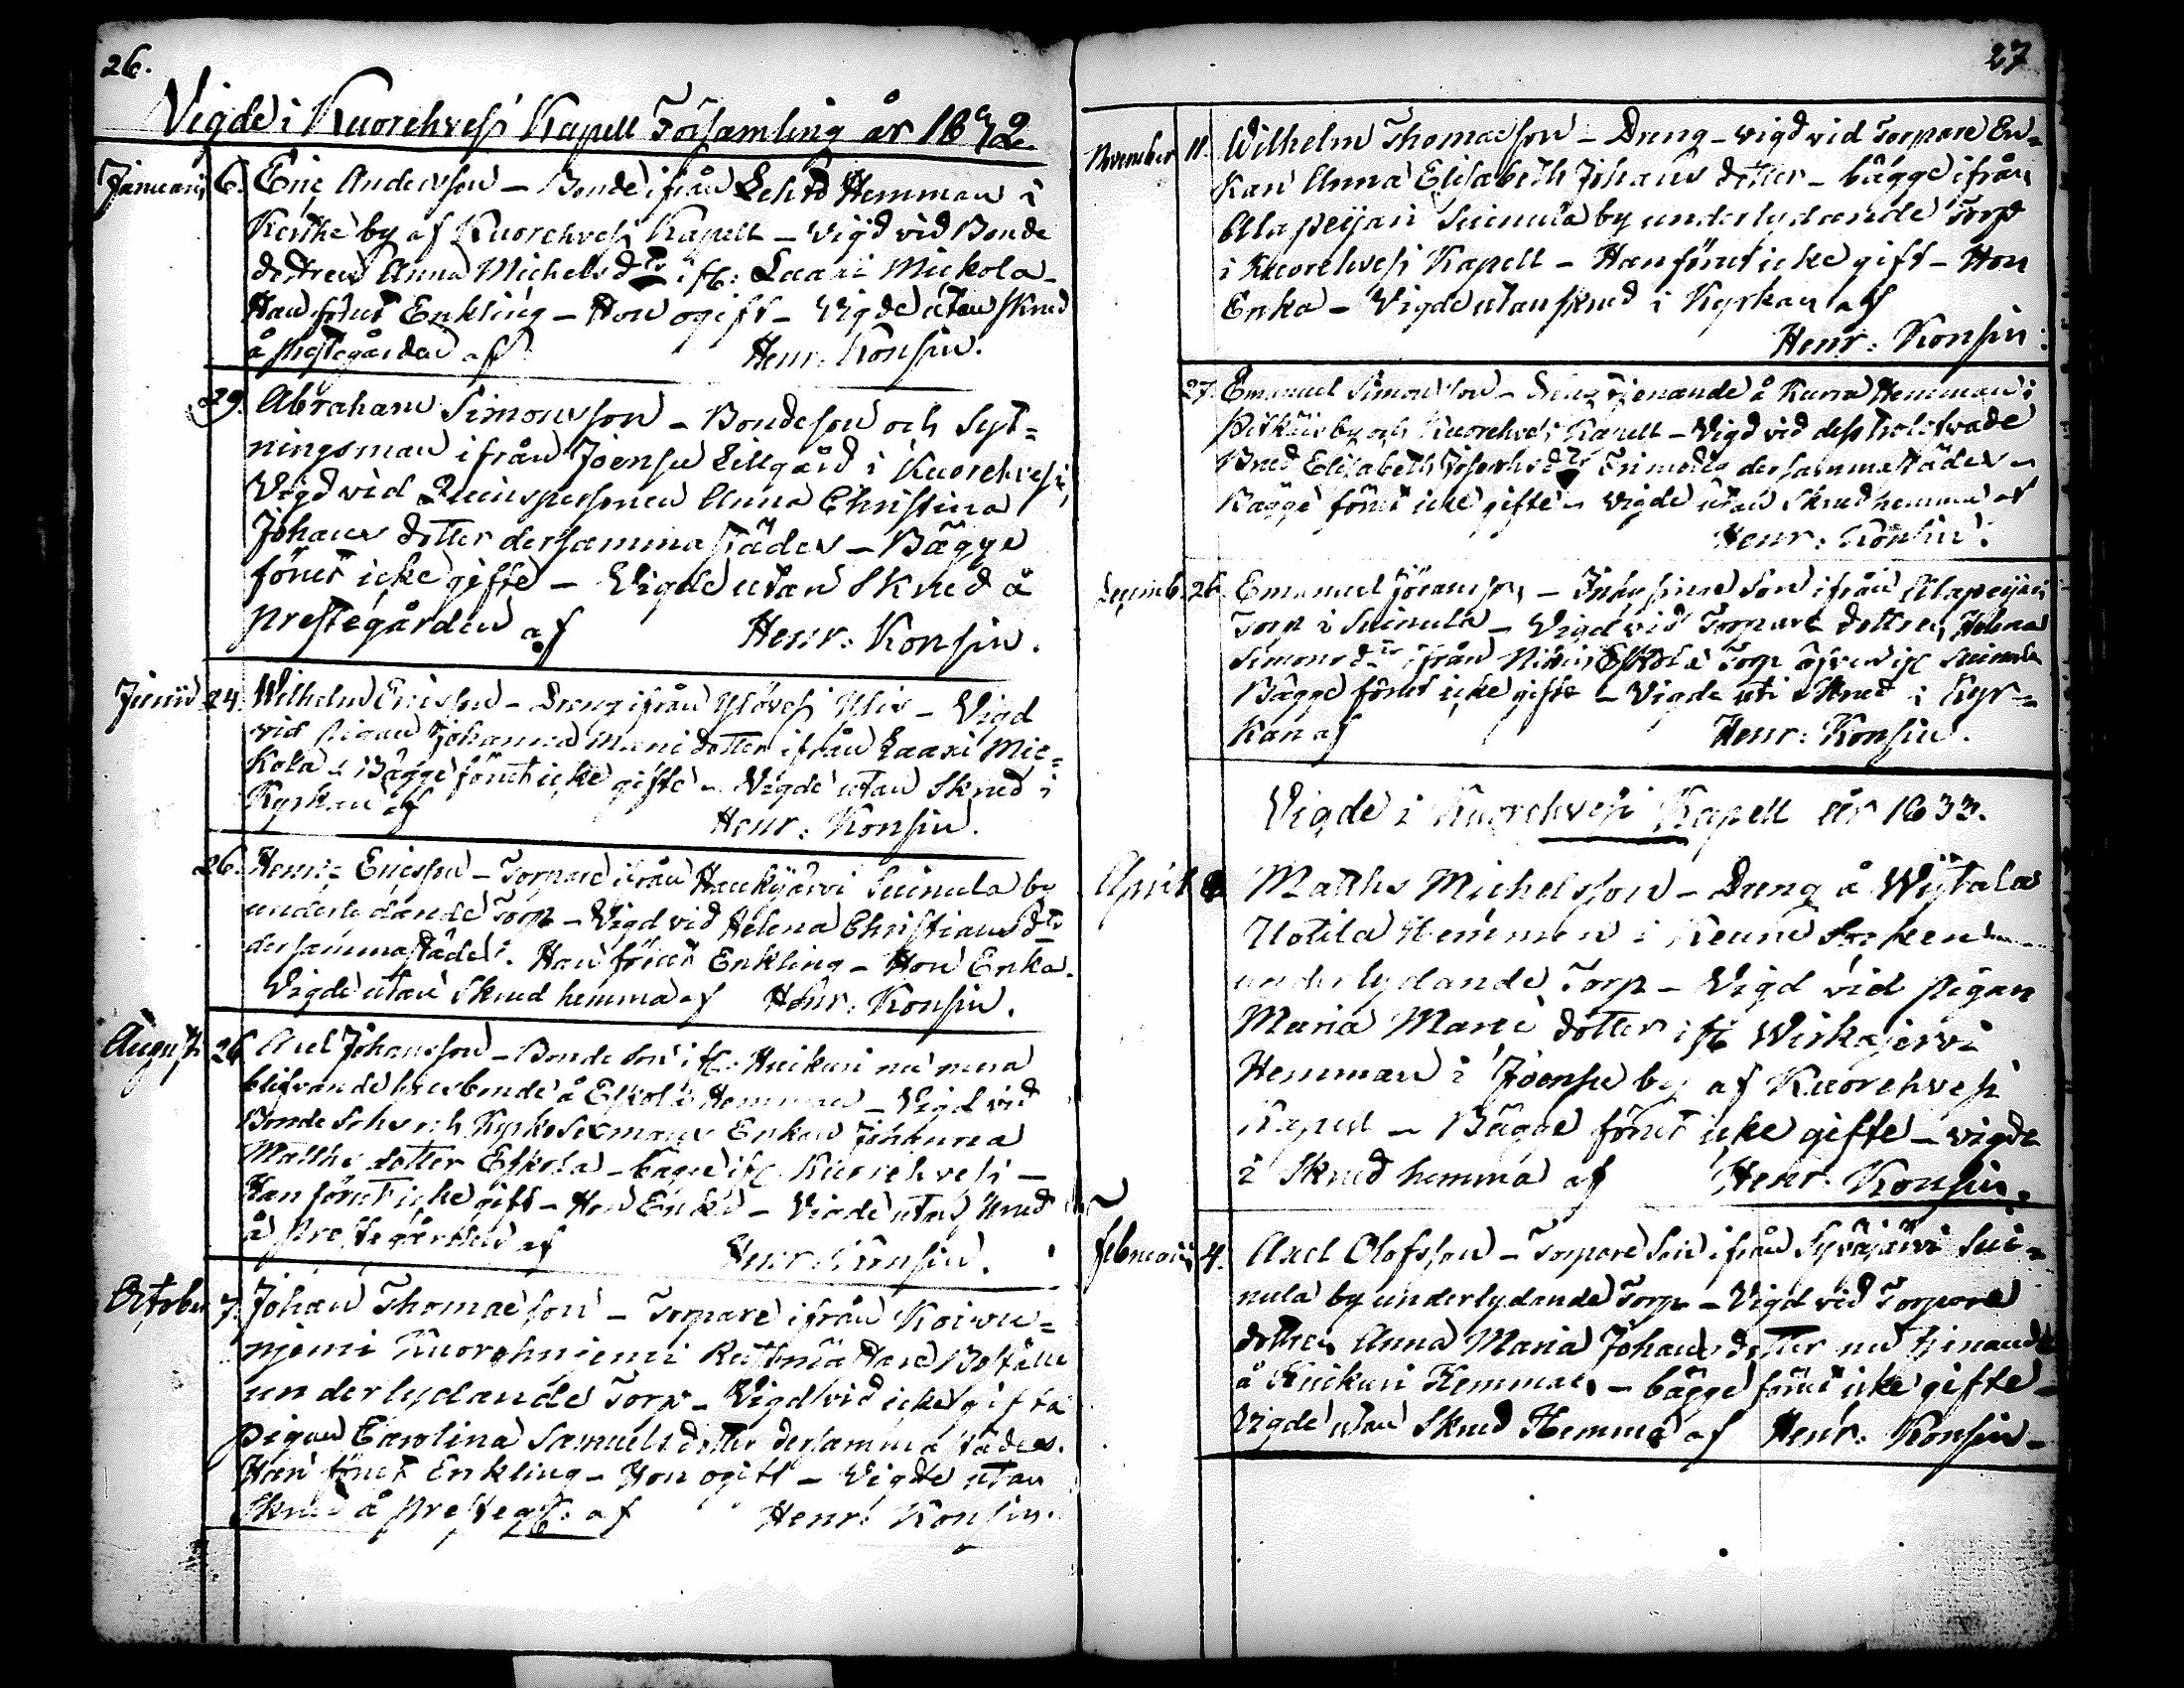 26.
Vigde i Kuorehvesi Kapell Församling år 1832.
Januarii 6. Eric Andersson – Bonde ifrån Lehto Hemman i
Kertte by af Kuorehvesi Kapell – Vigd vid Bonde
dottren Anna Michels dtr if: Laari Mickola –
Han förut Enkling – Hon ogift – Vigde utan skrud
å prestegården af Henr: Konsin.
29. Abraham Simonsson – Bondeson och Syt=
ningsman ifrån Joensu Lillgård i Kuorehvesi,
Vigd vid Qvinspersonen Anna Christina
Johans dotter dersammastädes – Bägge
förut icke gifte – Vigde utan Skrud å
prestegården af Henr: Konsin.
Junii 24. Wilhelm Ericsson – Dreng ifrån Ylövesi – Vigd
vid pigan Johanna Marie dotter ifrån Laari Mic=
kola – Bägge förut icke gifte – Vigde utan Skrud i
Kyrkan af Henr: Konsin.
26. Henr: Ericsson – Torpare ifrån Haukijärvi Suinula by
underlydande Torp – Vigd vid Helena Christians dtr
dersammastädes. Han förut Enkling – Hon Enka.
Vigde utan Skrud hemma af Henr: Konsin.
Augusti 26. Axel Johansson – Bonde Son if: Huikari nu mera
blifvande husbonde å Eskola Hemman – Vigd vid
Bonde Sons och Kyrko Sexmans Enkan Johanna
Matths dotter Eskola – bägge if: Kuorehvesi –
Han förut icke gift – Hon Enka – Vigde utan skrud
å prestegården af Henr: Konsin.
October 7. Johan Thomae son – Torpare ifrån Koivu=
njemi Kuorehnjemi Ruthmästare Boställe
underlydande Torp – Vigd vid icke gifta
pigan Carolina Samuels dotter dersamma städes.
Han förut Enkling – Hon ogift – Vigde utan
Skrud å presteg: af Henr: Konsin.
27
November 11. Wilhelm Thomaeson – Dreng – vigd vid Torpare En=
kan Anna Elisabeth Johans dotter – bägge ifrån
Alapeijari Suinula by underlydande Torp
i Kuorehvesi Kapell – Han förut icke gift – Hon
Enka – Vigde utan skrud i Kyrkan af
Henr: Konsin.
27. Emanuel Simonsson – Dreng tjenande å Hemman i
by och Kuorehvesi Kapell – Vigd vid dess trolofvade
Brud Elisabeth Josephs dtr dersammastädes –
Bägge förut icke gifte – Vigde utan Skrud hemma af
Henr: Konsin.
Decemb. 26. Emanuel Göransson – Inhysinge Son ifrån Alapeijari
Torp i Suinula – Vigd vid Torpare dottren Helena
Simons dtr ifrån Eskola Torp äfven if: Suinula
Bägge förut icke gifte – Vigde uti Skrud i Kyr=
kan af Henr: Konsin.
Vigde i Kuorehvesi Kapell år 1833.
April Matths Michelsson – Dreng å Wijtala
Uotila Hemman i Keuru Socken
underlydande Torp – Vigd vid pigan
Maria Marie dotter if: Wirkajervi
Hemman i Joensu by af Kuorehvesi
Kapell – Bägge förut icke gifte – vigde
i Skrud hemma af Henr: Konsin.
Februarii 4. Axel Olofsson – Torpare Son ifrån Syväjärvi Sui=
nula by underlydande Torp – Vigd vid Torpare
dottren Anna Maria Johans dotter nu tjenande
å Huikari Hemman – bägge förut icke gifte –
Vigde utan Skrud Hemma af Henr: Konsin –